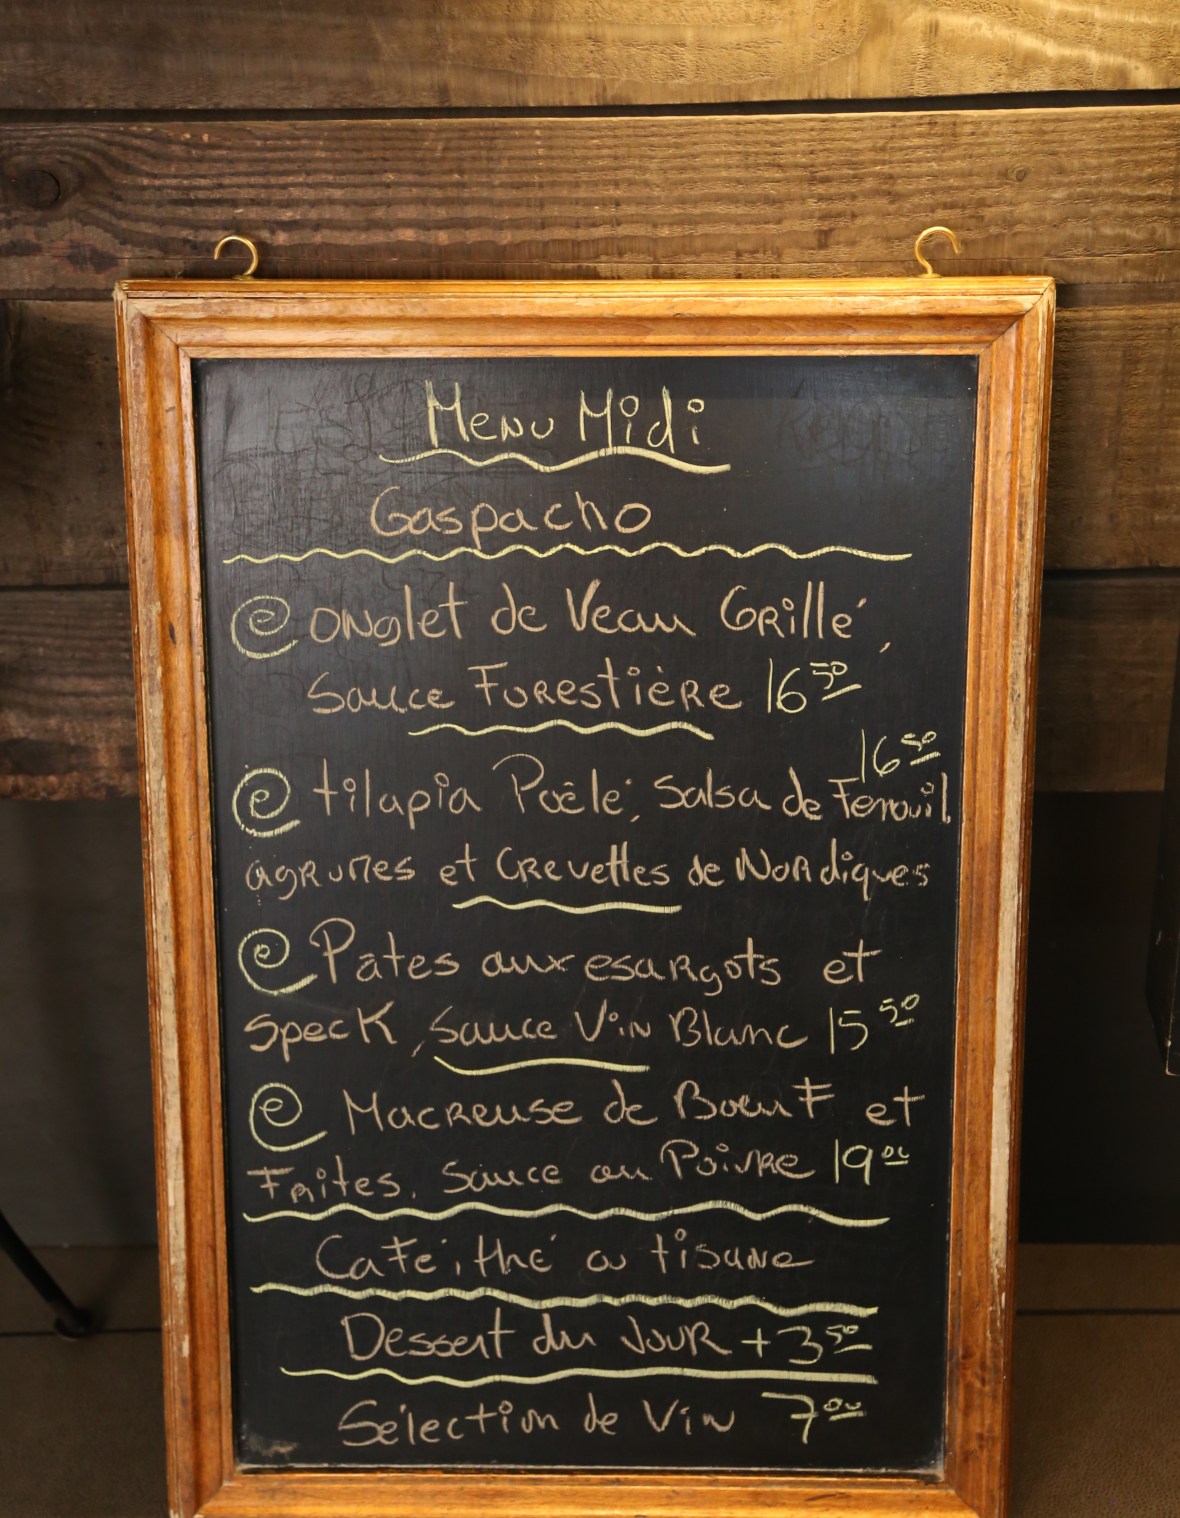 Menu Midi
Gaspacho
onglet de Veau Grillé,
Sauce Forestière 16 50
16 50
tilapia Poêlé, Salsa de Fenouil,
agrumes et Crevettes de Nordiques
Pâtes aux esargots et
Speck, Sauce Vin Blanc 15 50
Macreuse de Boeuf et
Frites, Sauce au Poivre 19 00
Café, thé ou tisane
Dessert du Jour + 3 50
Sélection de Vin 7 00